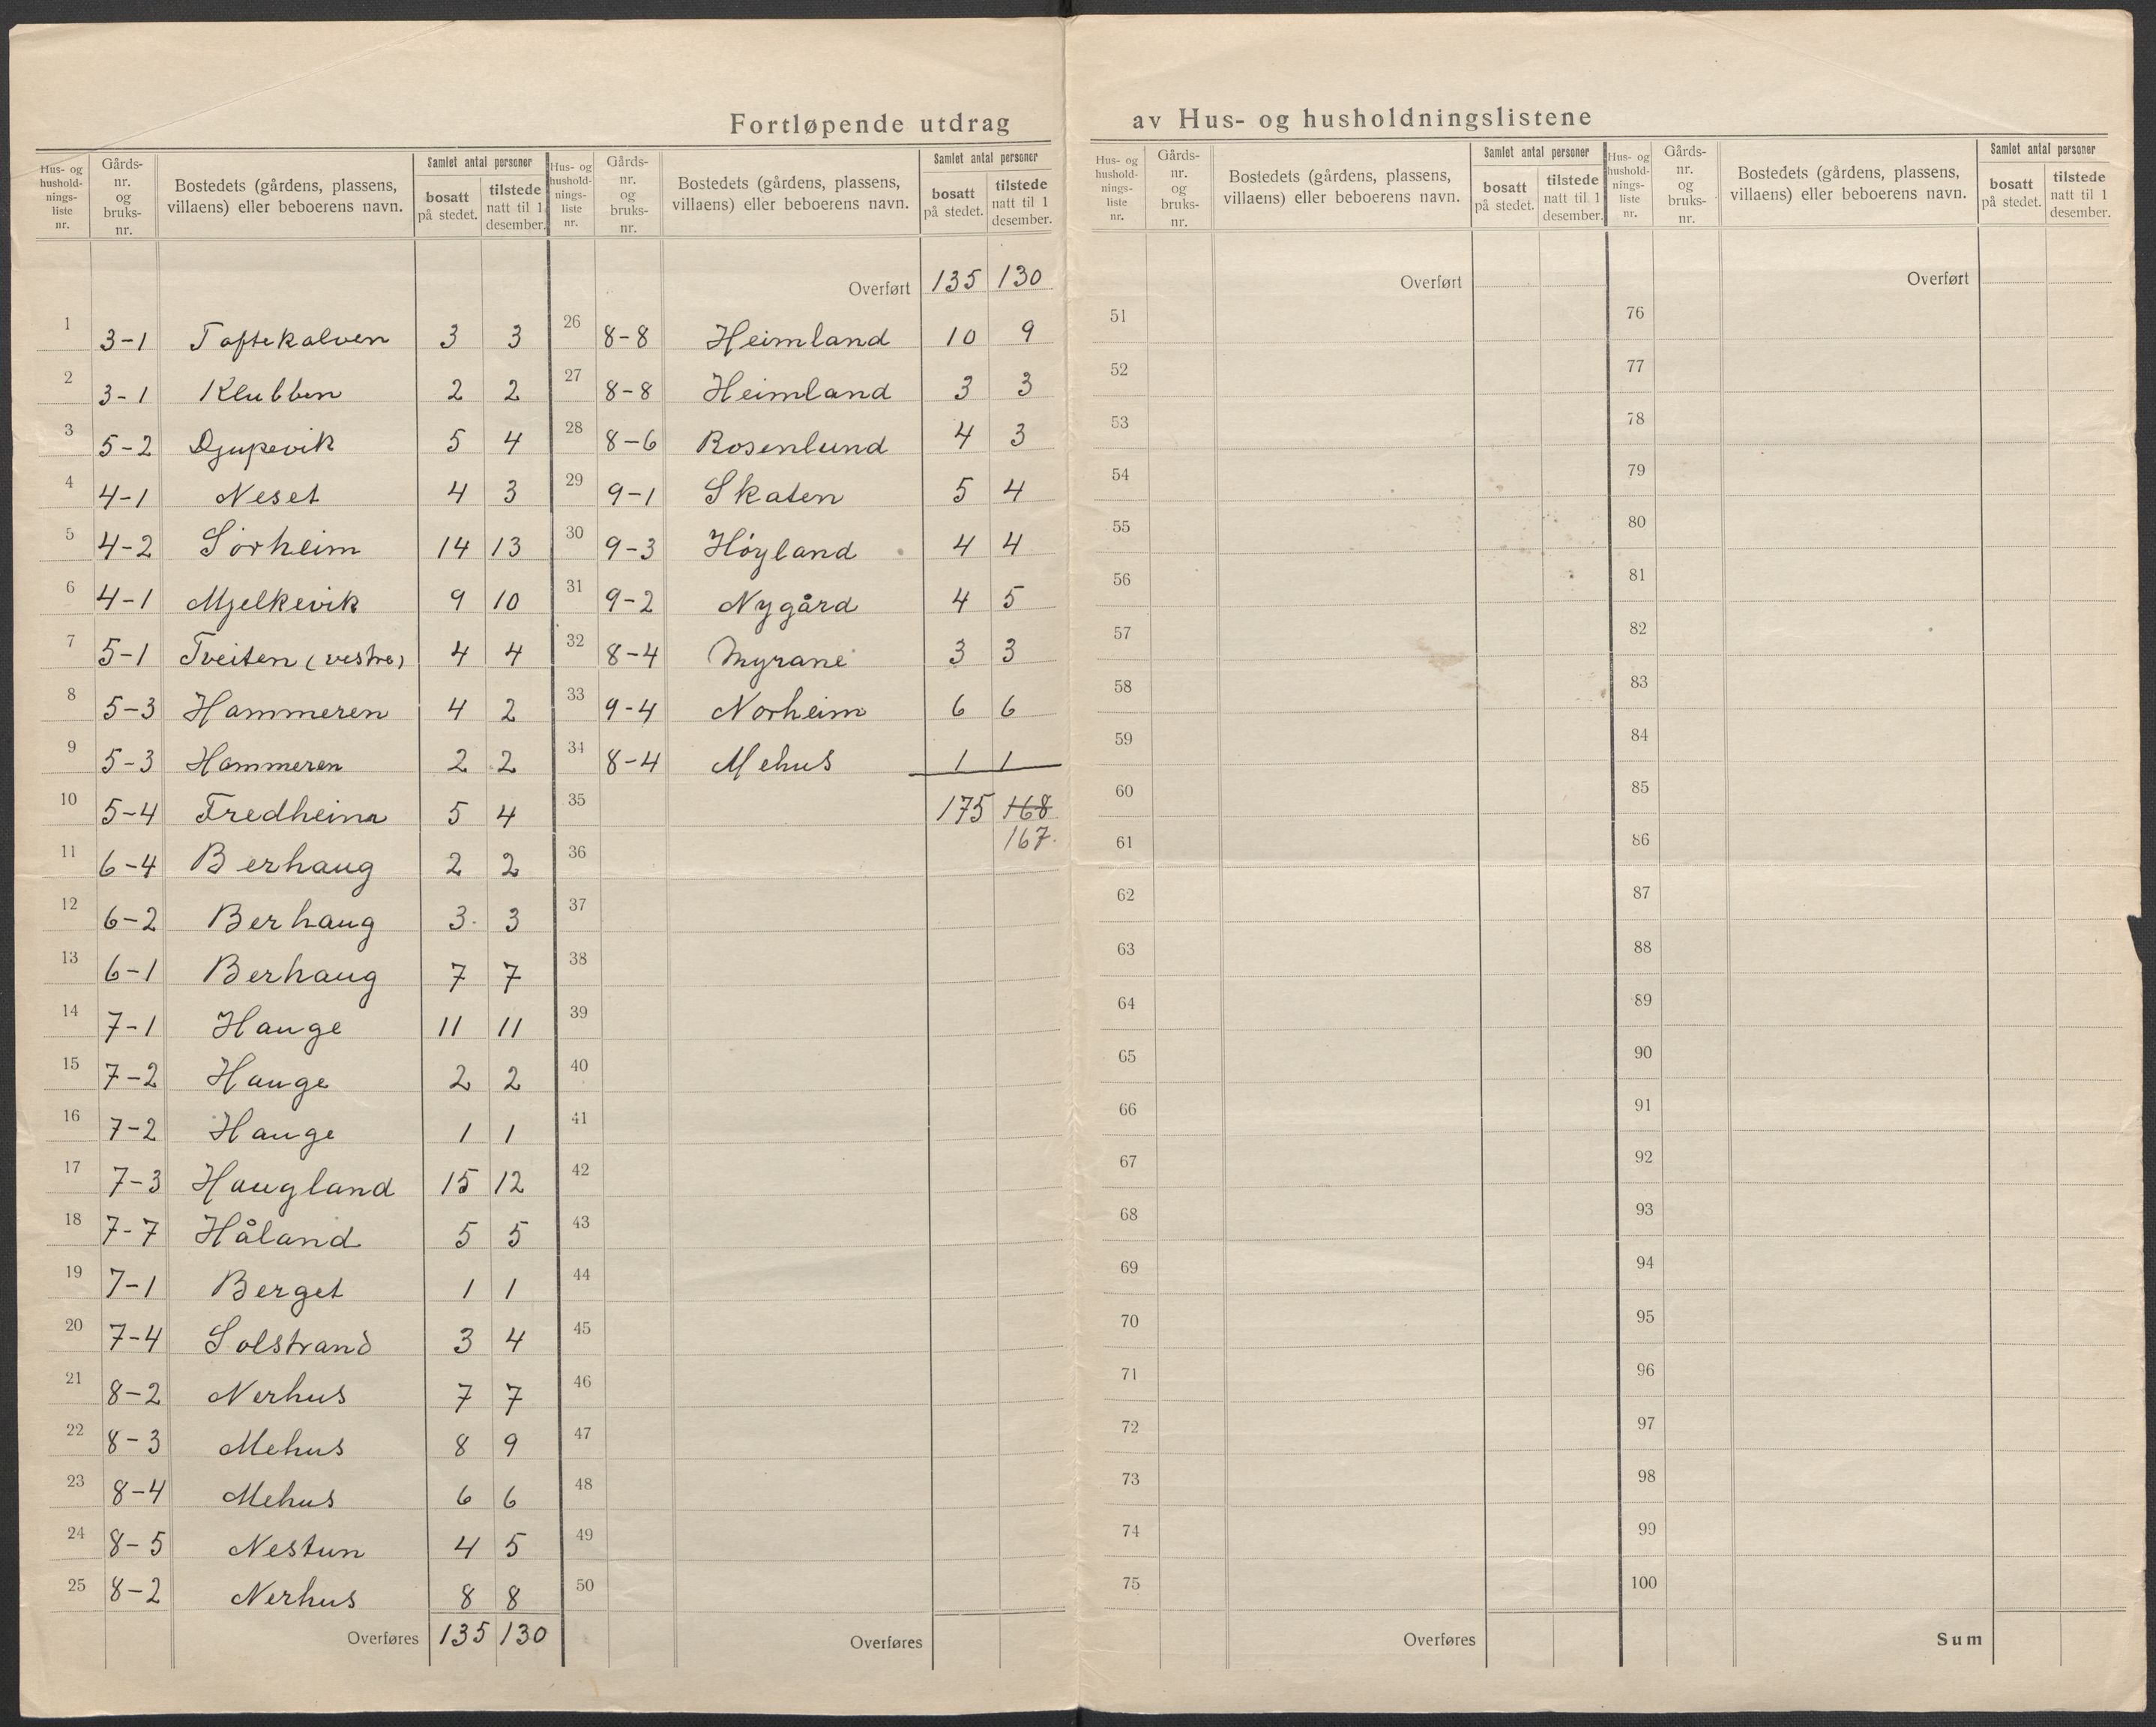 Fortløpende utdrag av Hus- og husholdningslistene
Hus- og hushold-nings-liste nr. Gårds-nr. og bruks-nr. Bostedets (gårdens, plassens, villaens) eller beboerens navn. Samlet antal personer bosatt på stedet. tilstede natt til 1 desember.
1 3-1 Toftekalven 3 3
2 3-1 Klubben 2 2
3 5-2 Djupevik 5 4
4 4-1 Neset 4 3
5 4-2 Sørheim 14 13
6 4-1 Mjelkevik 9 10
7 5-1 Tveiten (vestre) 4 4
8 5-3 Hammeren 4 2
9 5-3 Hammeren 2 2
10 5-4 Fredheim 5 4
11 6-4 Berhaug 2 2
12 6-2 Berhaug 3 3
13 6-1 Berhaug 7 7
14 7-1 Hauge 11 11
15 7-2 Hauge 2 2
16 7-2 Hauge 1 1
17 7-3 Haugland 15 12
18 7-7 Håland 5 5
19 7-1 Berget 1 1
20 7-4 Solstrand 3 4
21 8-2 Nerhus 7 7
22 8-3 Mehus 8 9
23 8-4 Mehus 6 6
24 8-5 Nestun 4 5
25 8-2 Nerhus 8 8
Overføres 135 130
Hus- og hushold-nings-liste nr. Gårds-nr. og bruks-nr. Bostedets (gårdens, plassens, villaens) eller beboerens navn. Samlet antal personer bosatt på stedet. tilstede natt til 1 desember.
Overført 135 130
26 8-8 Heimland 10 9
27 8-8 Heimland 3 3
28 8-6 Rosenlund 4 3
29 9-1 Skaten 5 4
30 9-3 Høyland 4 4
31 9-2 Nygård 4 5
32 8-4 Myrane 3 3
33 9-4 Norheim 6 6
34 8-4 Mehus 1 1
35 175 168
167.
36
37
38
39
40
41
42
43
44
45
46
47
48
49
50
Overføres
Hus- og hushold-nings-liste nr. Gårds-nr. og bruks-nr. Bostedets (gårdens, plassens, villaens) eller beboerens navn. Samlet antal personer bosatt på stedet. tilstede natt til 1 desember.
Overført
51
52
53
54
55
56
57
58
59
60
61
62
63
64
65
66
67
68
69
70
71
72
73
74
75
Overføres
Hus- og hushold-nings-liste nr. Gårds-nr. og bruks-nr. Bostedets (gårdens, plassens, villaens) eller beboerens navn. Samlet antal personer bosatt på stedet. tilstede natt til 1 desember.
Overført
76
77
78
79
80
81
82
83
84
85
86
87
88
89
90
91
92
93
94
95
96
97
98
99
100
Sum